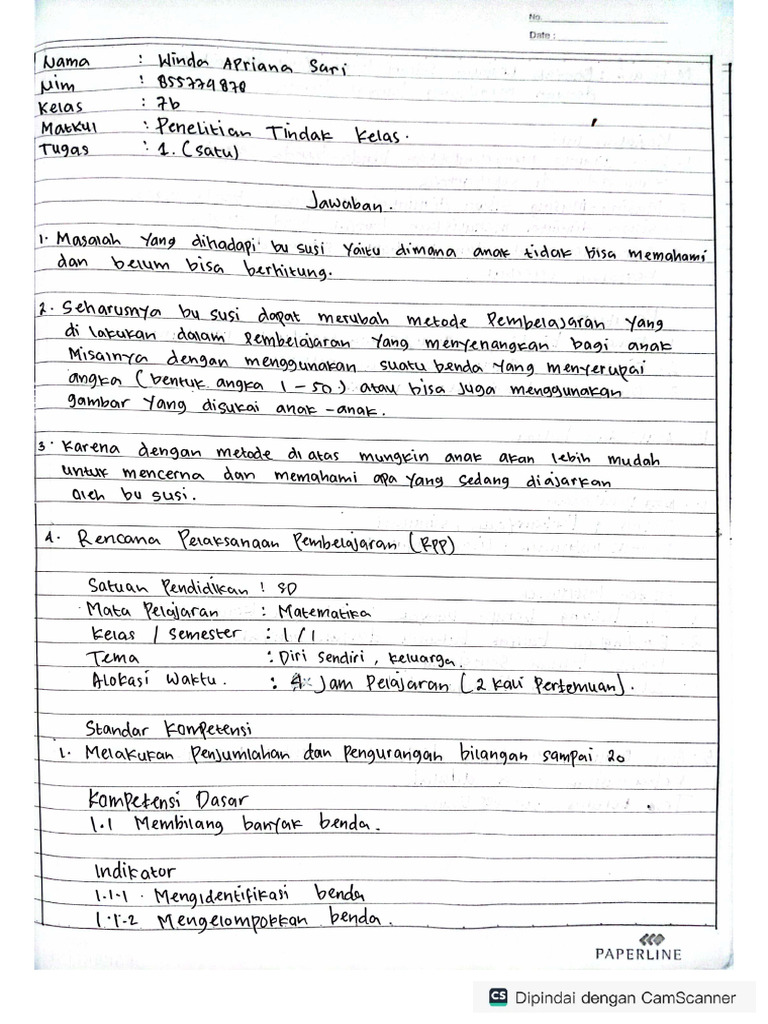 No.
Date :
Nama : Winda Apriana Sari
Nim : 855779870
Kelas : 7b
Matkul : Penelitian Tindak Kelas.
Tugas : 1. (satu)
Jawaban.
1. Masalah yang dihadapi bu susi yaitu dimana anak tidak bisa memahami
dan belum bisa berhitung.
2. Seharusnya bu susi dapat merubah metode Pembelajaran yang
di lakukan dalam Pembelajaran yang menyenangkan bagi anak
Misalnya dengan menggunakan suatu benda yang menyerupai
angka (bentuk angka 1 - 50) atau bisa juga menggunakan
gambar yang disukai anak - anak.
3. Karena dengan metode di atas mungkin anak akan lebih mudah
untuk mencerna dan memahami apa yang sedang diajarkan
oleh bu susi.
4. Rencana Pelaksanaan Pembelajaran (RPP)
Satuan Pendidikan : SD
Mata Pelajaran : Matematika
Kelas / Semester : 1 / 1
Tema : Diri sendiri, keluarga.
Alokasi Waktu. : 4 Jam Pelajaran (2 kali Pertemuan).
Standar Kompetensi
1. Melakukan Penjumlahan dan pengurangan bilangan sampai 20
Kompetensi Dasar
1.1 Membilang banyak benda.
Indikator
1.1.1 . Mengidentifikasi benda
1.1.2 Mengelompokkan benda.
PAPERLINE
CS Dipindai dengan CamScanner